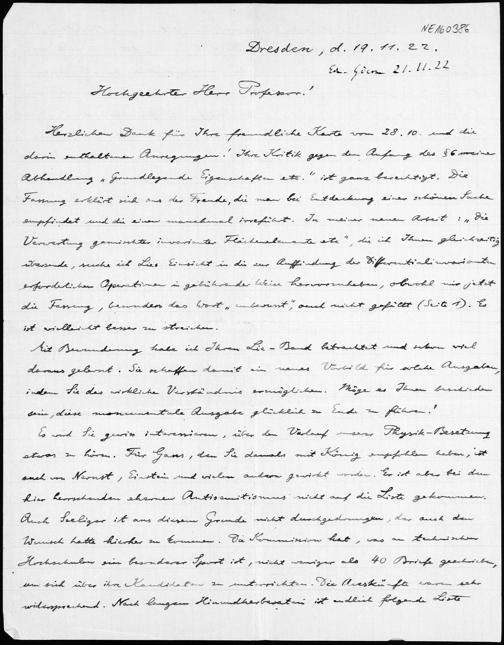 NE160386
Dresden, d. 19.11.22.
21.11.22
Hochgeehrter Herr Professor!
Herzlichen Dank für Ihre freundliche Karte vom 28.10. und die
darin enthaltenen Anregungen! Ihre Kritik gegen den Anfang des §6 meiner
Abhandlung „Grundlegende Eigenschaften etc." ist ganz berechtigt. Die
Fassung erklärt sich aus der Freude, die man bei Entdeckung einer schönen Sache
empfindet und die einen manchmal irreführt. In meiner neuen Arbeit: „Die
Verwertung gemischter invarianter Flächenelemente etc", die ich Ihnen gleichzeitig
übersende, suche ich Lies Einsicht in die zur Auffindung der Differentialinvarianten
erforderlichen Operationen in gebührender Weise hervorzuheben, obwohl mir jetzt
die Fassung, besonders das Wort „unbewusst", auch nicht gefällt (Seite 1). Es
ist vielleicht besser zu streichen.
Mit Bewunderung habe ich Ihren Lie-Band betrachtet und schon viel
daraus gelernt. Sie schaffen damit ein neues Vorbild für solche Ausgaben,
indem Sie das wirkliche Verständnis ermöglichen. Möge es Ihnen beschieden
sein, diese monumentale Ausgabe glücklich zu Ende zu führen!
Es wird Sie gewiss interessieren, über den Verlauf unserer Physik-Besetzung
etwas zu hören. Für Gans, den Sie damals mit König empfohlen haben, ist
auch von Nernst, Einstein und vielen andern gewirkt worden. Er ist aber bei dem
hier herrschenden Antisemitismus nicht auf die Liste gekommen.
Auch Seeliger ist aus diesem Grunde nicht durchgedrungen, der auch den
Wunsch hatte hierher zu kommen. Die Kommission hat, was an technischen
Hochschulen ein besonderer Sport ist, nicht weniger als 40 Briefe geschrieben,
um sich über ihre Kandidaten zu unterrichten. Die Auskünfte waren sehr
widersprechend. Nach langem Hinundherberaten ist endlich folgende Liste